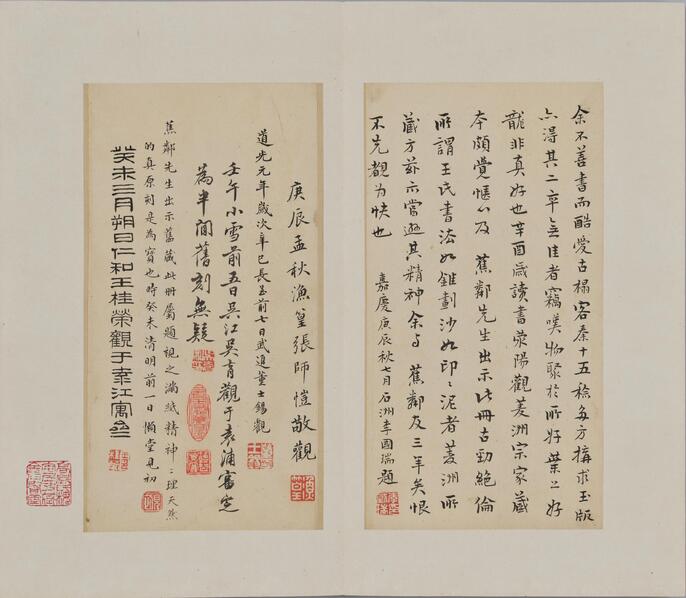 余不善書而酷愛古搨客秦十五稔多方搆求玉版
亦得其二卒無佳者竊嘆物聚於所好葉公好
龍非真好也辛酉歲讀書滎陽觀菱洲宗家藏
本頗覺愜心及 蕉鄰先生出示此冊古勁絕倫
所謂王氏書法如錐劃沙如印印泥者菱洲所
藏方茲亦當遜其精神余与 蕉鄰友三年矣恨
不先覩為快也
嘉慶庚辰秋七月石洲李國瑞題
庚辰孟秋漁篁張師愷敬觀
道光元年歲次辛巳長至前七日武進董士錫觀
壬午小雪前五日吳江吳育觀于袁浦審定
為半閒舊刻無疑
蕉鄰先生出示舊藏此冊屬題視之滿紙精神理天然
的真原刻是為寶也時癸未清明前一日懶堂見初
癸未三月朔日仁和王桂榮觀于袁江寓